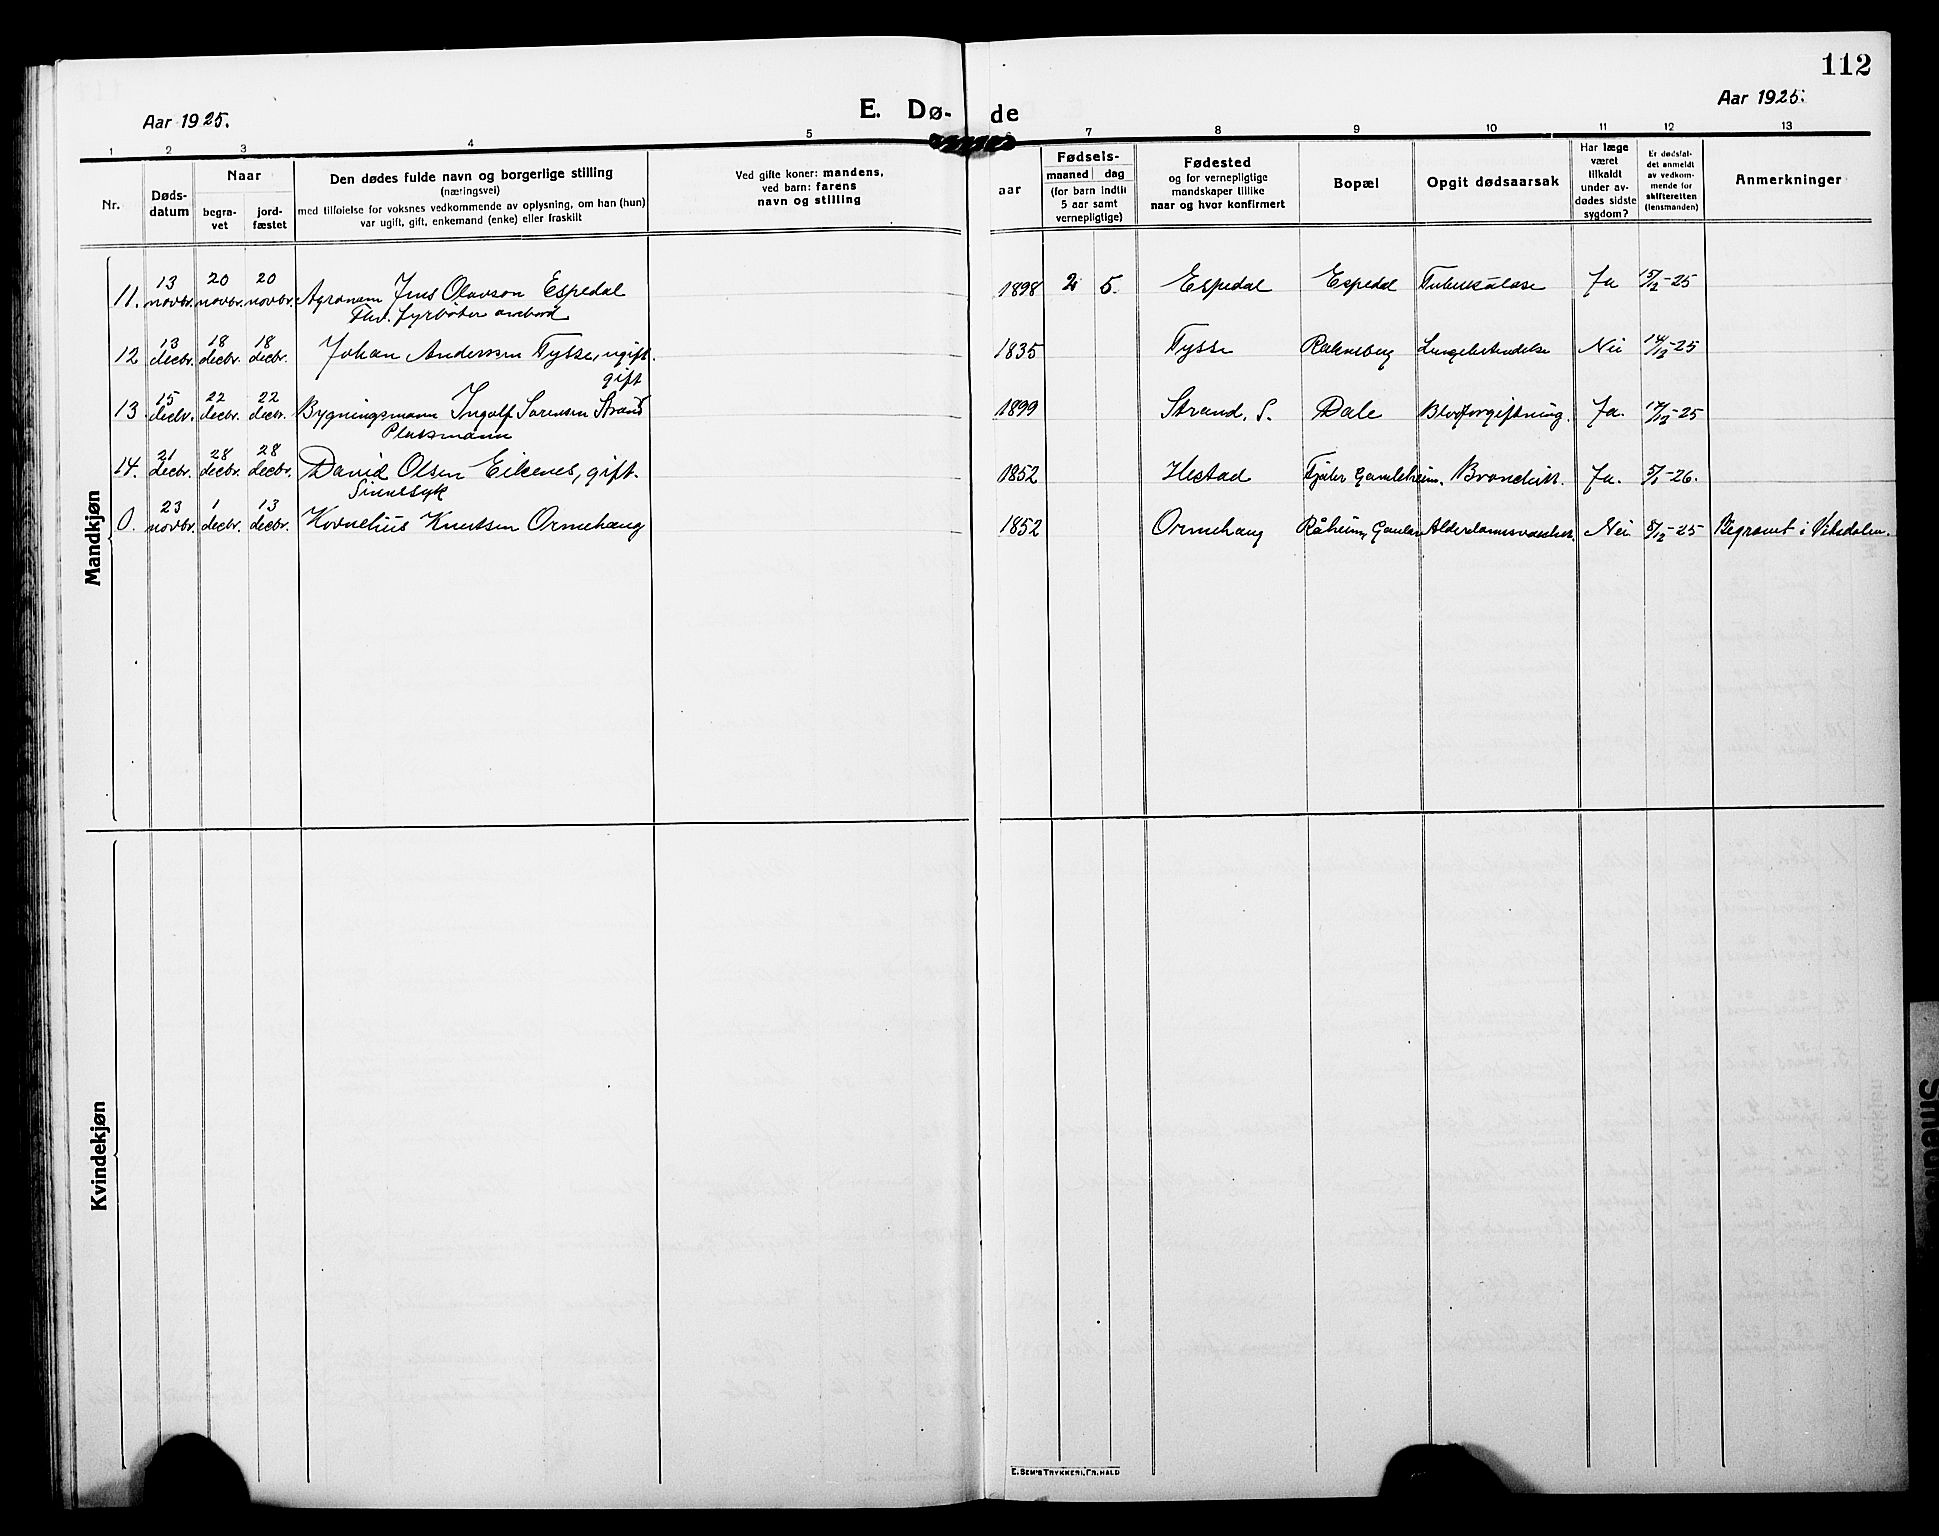 112
Aar 1925.
E. Dø-
de
Aar 1925.
1 2 3 4 5 6 7 8 9 10 11 12 13
Nr.
Døds-
datum
Naar
begra-
vet
jord-
fæstet
Den dødes fulde navn og borgerlige stilling
(næringsvei)
med tilføielse for voksnes vedkommende av oplysning, om han (hun)
var ugift, gift, enkemand (enke) eller fraskilt
Ved gifte koner: mandens,
ved barn: farens
navn og stilling
aar
Fødsels-
maaned dag
(for barn indtil
5 aar samt
vernepligtige)
Fødested
og for vernepligtige
mandskaper tillike
naar og hvor konfirmert
Bopæl
Opgit dødsaarsak
Har læge
været
tilkaldt
under av-
dødes sidste
sygdom?
Er dødsfal-
det anmeldt
av vedkom-
mende for
skifteretten
(lensmanden)
Anmerkninger
Mandkjøn
11. 13 novbr. 20 novbr. 20 novbr. Agronom Jens Olavson Espedal 1898 2 5. Espedal Espedal Tuberkulose Ja 15/12-25
Fhv. fyrbøter ombord
12 13 decbr. 18 decbr. 18 decbr. Johan Anderssen Tysse, ugift. 1835 Tysse Lungebetændelse Nei 14/12-25
gift
13 15 decbr. 22 decbr. 22 decbr. Bygningsmann Ingolf Sørensen Strand 1899 Strand, S. Dale Blodforgiftning. Ja. 17/12-25
Plassmann
14. 21 decbr. 28 decbr. 28 decbr. David Olsen Eikenes, gift. 1852 Hestad Fjaler Gamleheim. Ja. 5/1-26.
Sinnesyk
0. 23 novbr. 1 decbr. 13 decbr. Kornelius Knutsen Ormehaug 1852 Ormehaug Råheim, Gaular Alderdomssvakhet. Nei 8/12-25 Begravet i Viksdalen.
Kvindekjøn
E. SEM'S TRYKKERI, FR.HALD